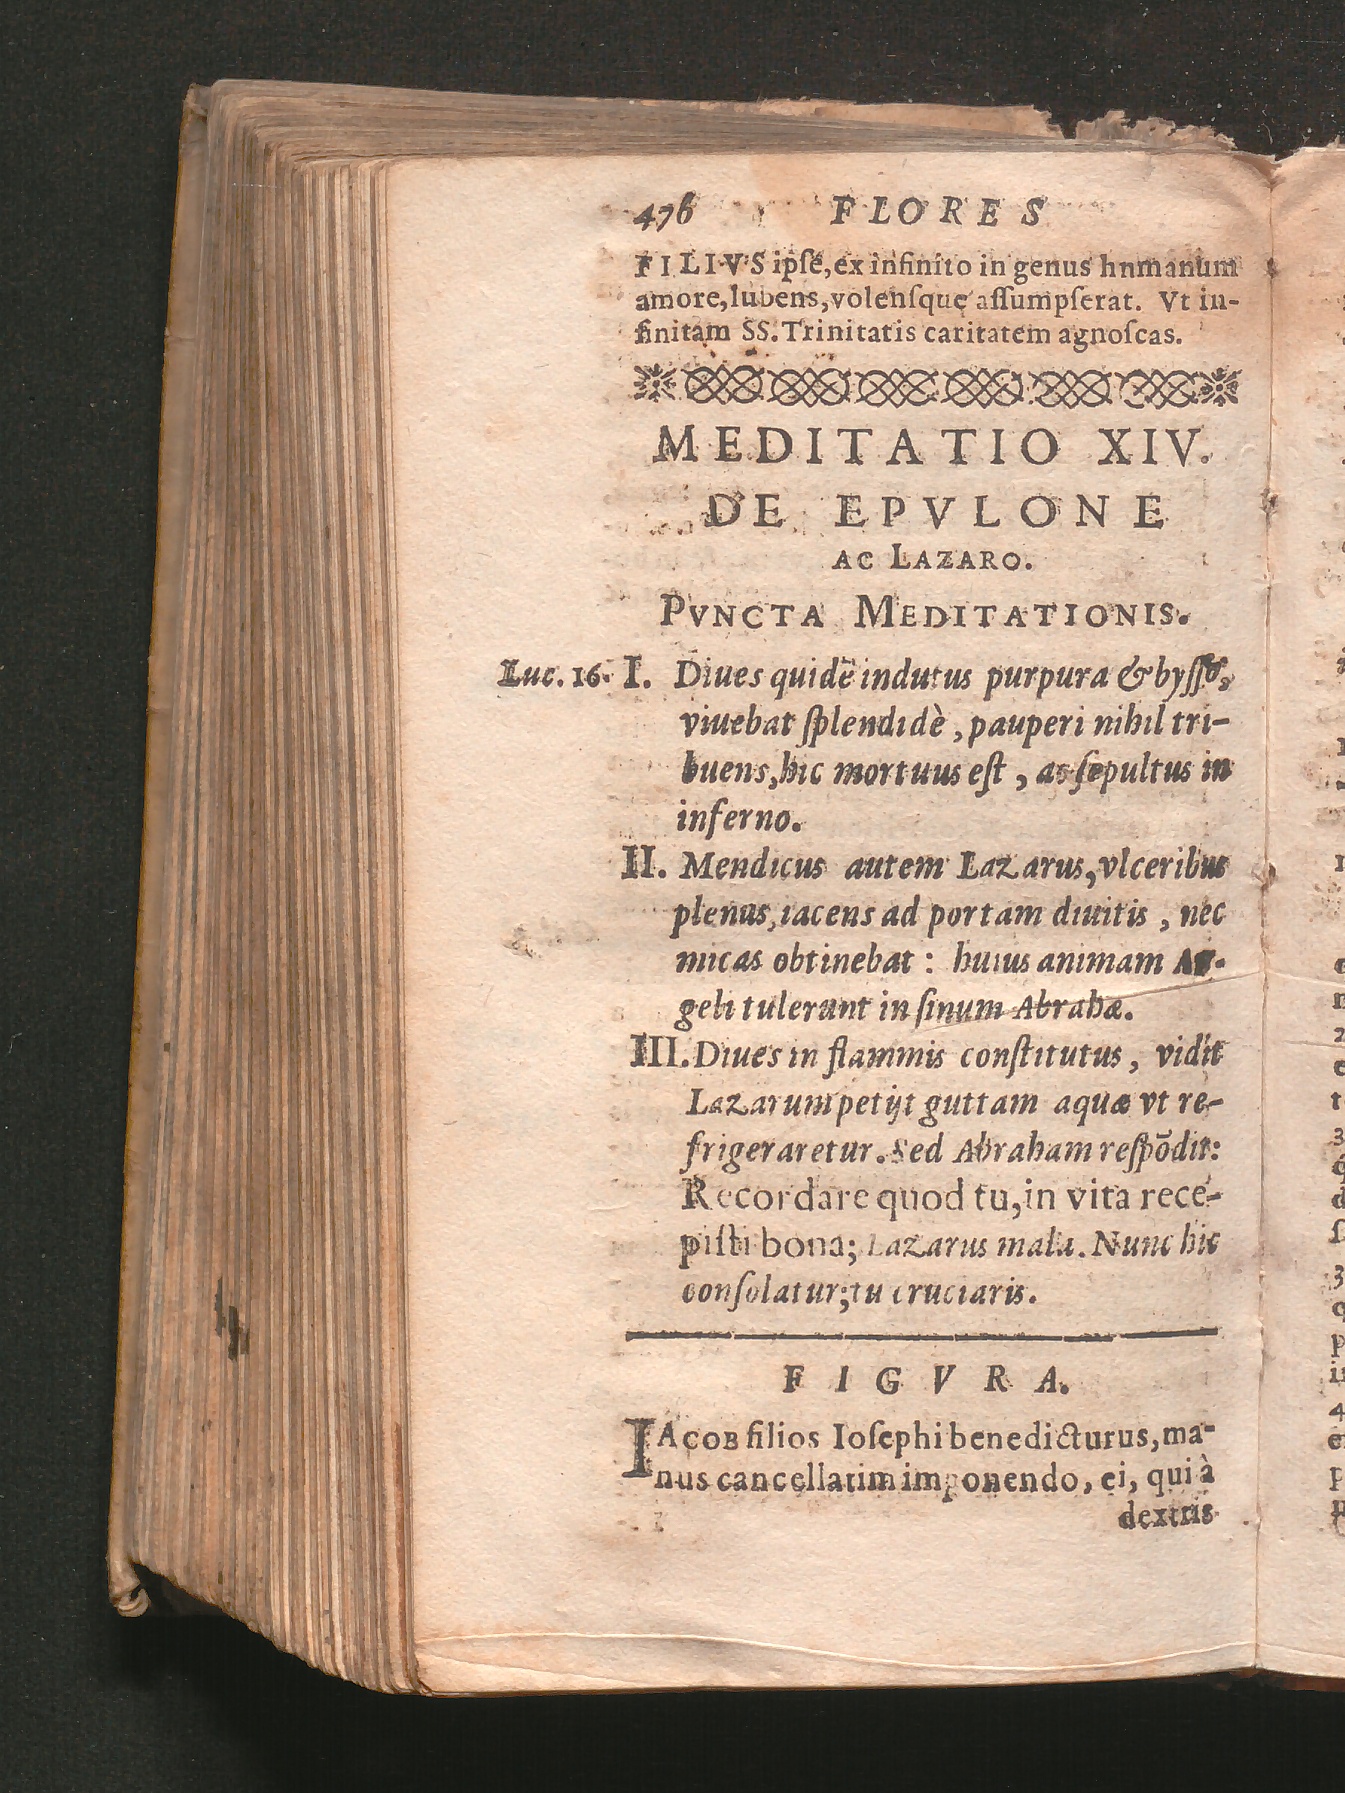 476 FLORES
FILIVS ipſe, ex infinito in genus hnmanum
amore, lubens, volenſque aſſumpſerat. Vt in-
finitam SS. Trinitatis caritatem agnoſcas.
MEDITATIO XIV.
DE EPVLONE
AC LAZARO.
PVNCTA MEDITATIONIS.
Luc. 16. I. Diues quidē indutus purpura & byſſo,
viuebat ſplendidè, pauperi nihil tri-
buens, hic mortuus eſt, ac ſepultus in
inferno.
II. Mendicus autem Lazarus, vlceribus
plenus, iacens ad portam diuitis, nec
micas obtinebat: huius animam An-
geli tulerunt in ſinum Abrahæ.
III. Diues in flammis conſtitutus, vidit
Lazarum petijt guttam aquæ vt re-
frigeraretur. Sed Abraham reſpōdit:
Recordare quod tu, in vita rece-
piſti bona; Lazarus mala. Nunc hic
conſolatur; tu cruciaris.
FIGVRA.
IACOB filios Ioſephi benedicturus, ma-
nus cancellatim imponendo, ei, qui à
dextris